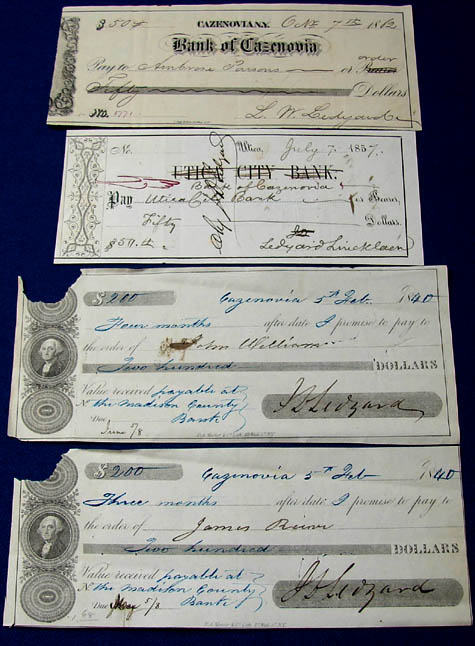 $50# CAZENOVIA N.Y. Oct 7th 1862
Bank of Cazenovia
Pay to Ambrose Parsons or order
Bearer
Fifty Dollars
No. 1771 L. W. Ledyard
No. Utica, July 7. 1857.
UTICA CITY BANK.
Bank of Cazenovia
Pay Utica City Bank or Bearer,
Fifty Dollars.
$50.
Ledyard Lincklaen
$ 200 Cazenovia 5th Feb. 1840
Four months after date I promise to pay to
the order of John William
Two hundred DOLLARS
Value received payable at
No the Madison County
Bank
Due June 5/8
$ 200 Cazenovia 5th Feb 1840
Three months after date I promise to pay to
the order of James
Two hundred DOLLARS
Value received payable at
No the Madison County
Bank
Due May 5/8